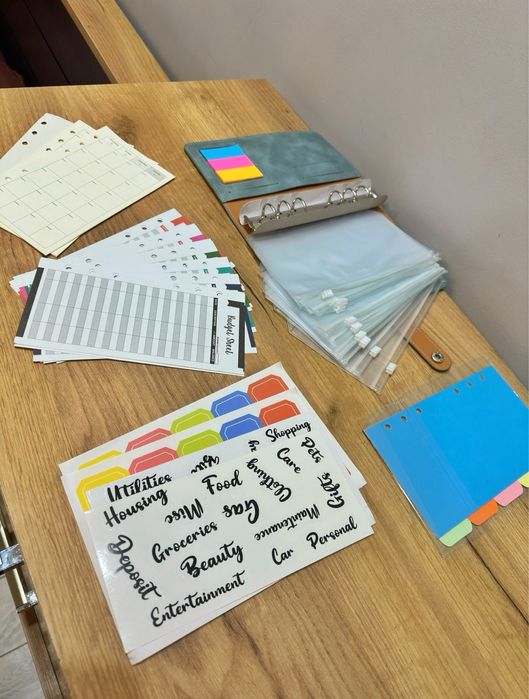 Budget Sheet
Shopping
Utilities
Food
Clothing
Care
Pets
Housing
Misc
Gas
Gifts
Groceries
Maintenance
Deposit
Beauty
Car
Personal
Entertainment